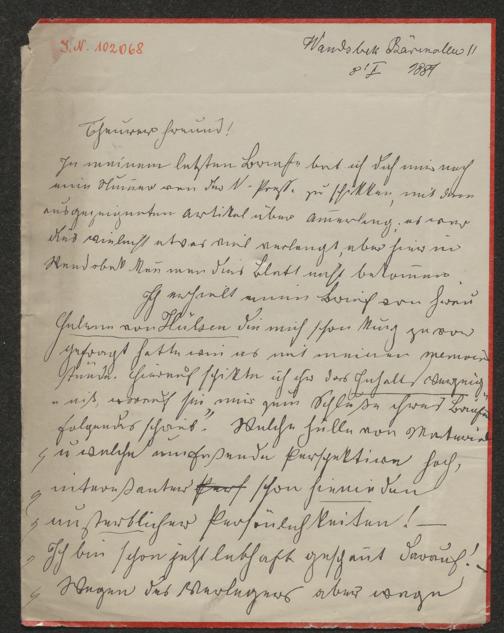 J.N. 102068
Wandsbek Bärenallee 11
8/I 1889
Theurer Freund!
In meinem letzten Briefe bat ich dich mir noch
eine Numer von der N. Presse zu schikken, mit dem
ausgezeigneten Artikel über Amerling; es war
dies vielleicht etwas viel verlangt, aber hier in
Wandsbek kan man dies Blatt nicht bekommen.
Ich erhielt einen Brief von Frau
Helene von Hülsen die mich schon kurz zuvor
gefragt hatte wie es mit meinen Memoiren
stünde. Hierauf schikte ich ihr das Inhaltsverzeig-
nis, worauf sie mir zum Schluße ihres Briefes
folgendes schrieb: "Welche Fülle von Material
" u welche umfaßende Perspektive hoch,
" interessanter schon hienieden
" unsterblicher Persönlichkeiten! —
" Ich bin schon jetzt lebhaft gespant darauf! —
" Wegen des Verlegers aber wege